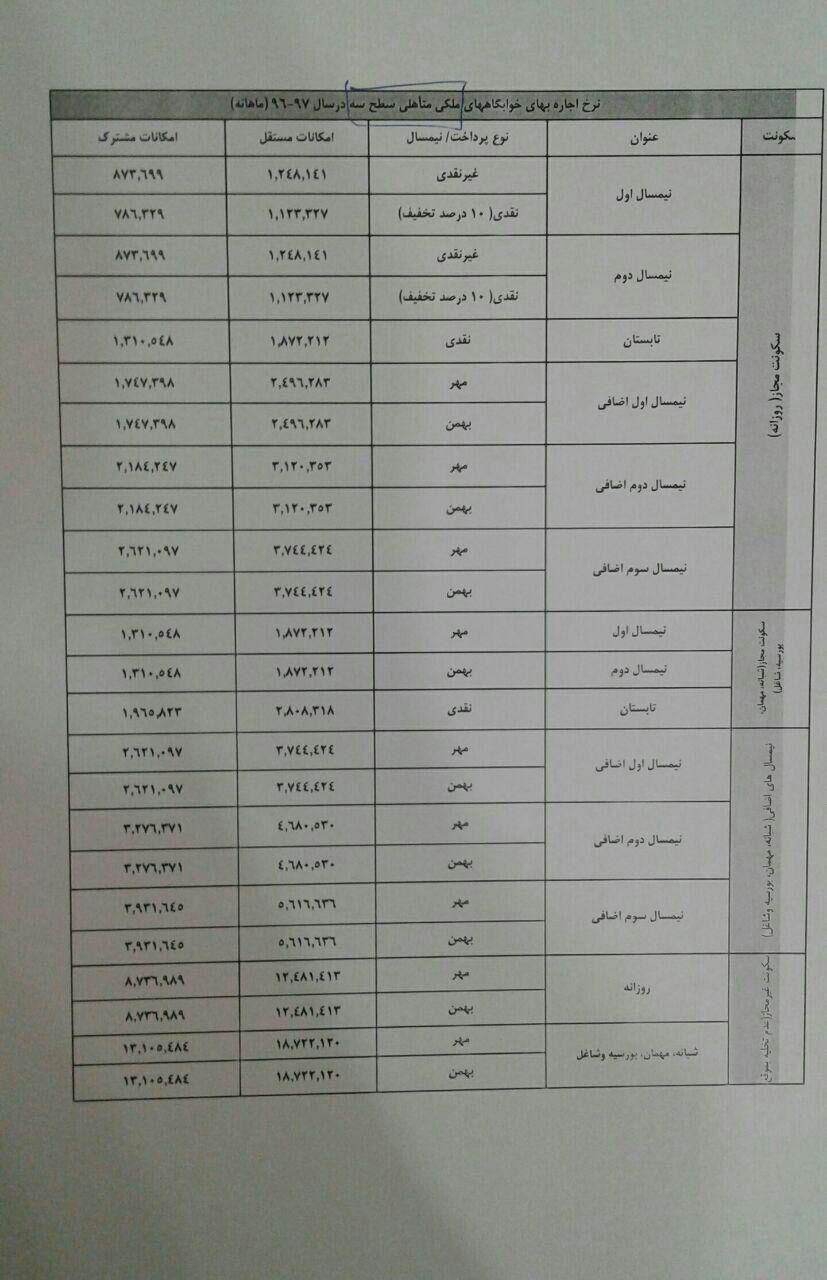 نرخ اجاره بهای خوابگاههای ملکی متأهلی سطح سه درسال ۹۷-۹۶ (ماهانه)
سکونت عنوان نوع پرداخت/ نیمسال امکانات مستقل امکانات مشترک
سکونت مجاز( روزانه)
نیمسال اول غیرنقدی ۱,۲٤۸,۱٤۱ ۸۷۳,٦۹۹
نقدی( ۱۰ درصد تخفیف) ۱,۱۲۳,۳۲۷ ۷۸٦,۳۲۹
نیمسال دوم غیرنقدی ۱,۲٤۸,۱٤۱ ۸۷۳,٦۹۹
نقدی( ۱۰ درصد تخفیف) ۱,۱۲۳,۳۲۷ ۷۸٦,۳۲۹
تابستان نقدی ۱,۸۷۲,۲۱۲ ۱,۳۱۰,٥٤۸
نیمسال اول اضافی مهر ۲,٤۹٦,۲۸۳ ۱,۷٤۷,۳۹۸
بهمن ۲,٤۹٦,۲۸۳ ۱,۷٤۷,۳۹۸
نیمسال دوم اضافی مهر ۳,۱۲۰,۳٥۳ ۲,۱۸٤,۲٤۷
بهمن ۳,۱۲۰,۳٥۳ ۲,۱۸٤,۲٤۷
نیمسال سوم اضافی مهر ۳,۷٤٤,٤۲٤ ۲,٦۲۱,۰۹۷
بهمن ۳,۷٤٤,٤۲٤ ۲,٦۲۱,۰۹۷
سکونت مجاز(شبانه، مهمان،
بورسیه، شاغل)
نیمسال اول مهر ۱,۸۷۲,۲۱۲ ۱,۳۱۰,٥٤۸
نیمسال دوم بهمن ۱,۸۷۲,۲۱۲ ۱,۳۱۰,٥٤۸
تابستان نقدی ۲,۸۰۸,۳۱۸ ۱,۹٦٥,۸۲۳
نیمسال های اضافی( شبانه، مهمان، بورسیه وشاغل)
نیمسال اول اضافی مهر ۳,۷٤٤,٤۲٤ ۲,٦۲۱,۰۹۷
بهمن ۳,۷٤٤,٤۲٤ ۲,٦۲۱,۰۹۷
نیمسال دوم اضافی مهر ٤,٦۸۰,٥۳۰ ۳,۲۷٦,۳۷۱
بهمن ٤,٦۸۰,٥۳۰ ۳,۲۷٦,۳۷۱
نیمسال سوم اضافی مهر ٥,٦۱٦,٦۳٦ ۳,۹۳۱,٦٤٥
بهمن ٥,٦۱٦,٦۳٦ ۳,۹۳۱,٦٤٥
سکونت غیرمجاز(عدم تخلیه بموقع
روزانه مهر ۱۲,٤۸۱,٤۱۳ ۸,۷۳٦,۹۸۹
بهمن ۱۲,٤۸۱,٤۱۳ ۸,۷۳٦,۹۸۹
شبانه، مهمان، بورسیه وشاغل مهر ۱۸,۷۲۲,۱۲۰ ۱۳,۱۰٥,٤۸٤
بهمن ۱۸,۷۲۲,۱۲۰ ۱۳,۱۰٥,٤۸٤